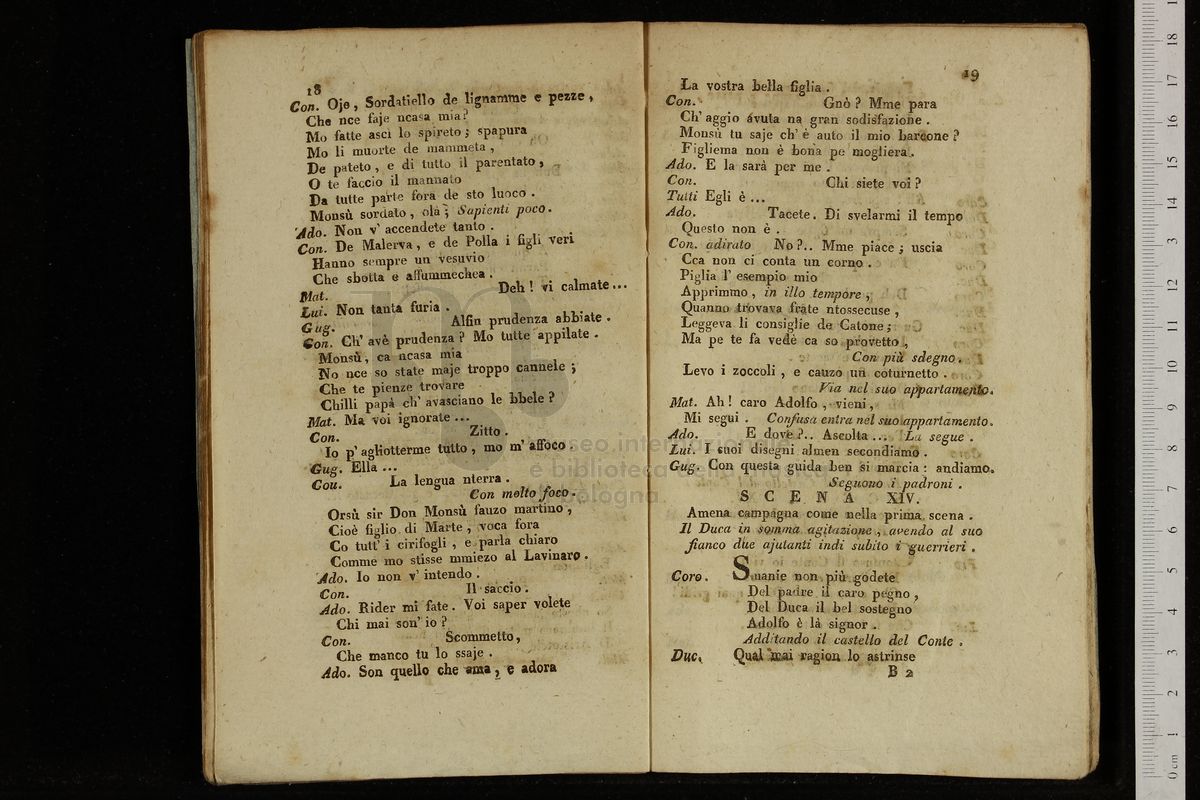 18
Con. Oje, Sordatiello de lignamme e pezze,
Che nce faje ncasa mia?
Mo fatte ascì lo spireto; spapura
Mo li muorte de mammeta,
De pateto, e di tutto il parentato,
O te faccio il mannato
Da tutte parte fora de sto luoco.
Monsù sordato, olà; Sapienti poco.
Ado. Non v' accendete tanto.
Con. De Malerva, e de Polla i figli veri
Hanno sempre un vesuvio
Che sbotta e affummechea.
Mat. Deh! vi calmate...
Lui. Non tanta furia.
Gug. Alfin prudenza abbiate.
Con. Ch' avè prudenza? Mo tutte appilate.
Monsù, ca ncasa mia
No nce so state maje troppo cannele;
Che te pienze trovare
Chilli papà ch' avasciano le bbele?
Mat. Ma voi ignorate...
Con. Zitto.
Io p' agliotterme tutto, mo m' affoco.
Gug. Ella...
Cou. La lengua nterra.
Con molto foco.
Orsù sir Don Monsù fauzo martino,
Cioè figlio di Marte, voca fora
Co tutt' i cirifogli, e parla chiaro
Comme mo stisse mmiezo al Lavinaro.
Ado. Io non v' intendo.
Con. Il saccio.
Ado. Rider mi fate. Voi saper volete
Chi mai son' io?
Con. Scommetto,
Che manco tu lo ssaje.
Ado. Son quello che ama, e adora
19
La vostra bella figlia.
Con. Gnò? Mme para
Ch' aggio avuta na gran sodisfazione.
Monsù tu saje ch' è auto il mio barcone?
Figliema non è bona pe mogliera.
Ado. E la sarà per me.
Con. Chi siete voi?
Tutti Egli è...
Ado. Tacete. Di svelarmi il tempo
Questo non è.
Con. adirato No?.. Mme piace; uscia
Cca non ci conta un corno.
Piglia l' esempio mio
Apprimmo, in illo tempore,
Quanno trovava frate ntossecuse,
Leggeva li consiglie de Catone;
Ma pe te fa vedè ca so provetto,
Con più sdegno.
Levo i zoccoli, e cauzo un coturnetto.
Via nel suo appartamento.
Mat. Ah! caro Adolfo, vieni,
Mi segui. Confusa entra nel suo appartamento.
Ado. E dove?.. Ascolta... La segue.
Lui. I suoi disegni almen secondiamo.
Gug. Con questa guida ben si marcia: andiamo.
Seguono i padroni.
SCENA XIV.
Amena campagna come nella prima scena.
Il Duca in somma agitazione, avendo al suo
fianco due ajutanti indi subito i guerrieri.
Coro. Smanie non più godete
Del padre il caro pegno,
Del Duca il bel sostegno
Adolfo è là signor.
Additando il castello del Conte.
Duc. Qual mai ragion lo astrinse
B 2
museo internazionale
e biblioteca della musica
di bologna